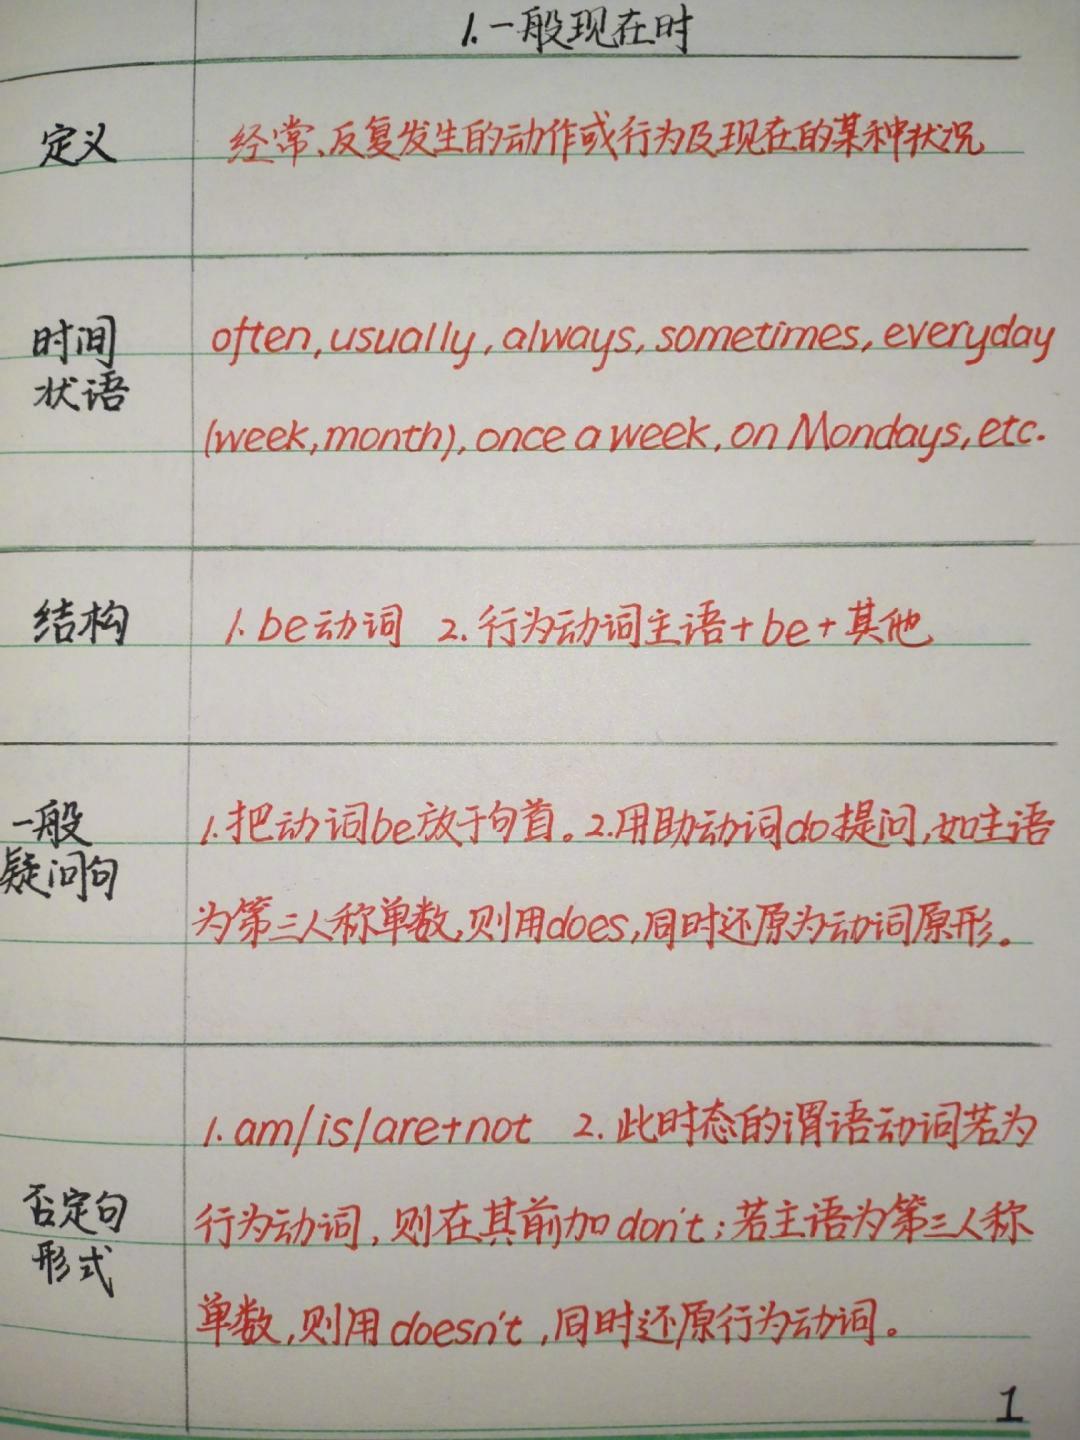 1.一般现在时
定义
经常、反复发生的动作或行为及现在的某种状况
时间
状语
often, usually, always, sometimes, everyday
(week, month), once a week, on Mondays, etc.
结构
1. be动词 2. 行为动词主语+be+其他
一般
疑问句
1.把动词be放于句首。2.用助动词do提问,如主语
为第三人称单数,则用does,同时还原为动词原形。
否定句
形式
1. am/is/are+not 2. 此时态的谓语动词若为
行为动词,则在其前加don't;若主语为第三人称
单数,则用doesn't,同时还原行为动词。
1